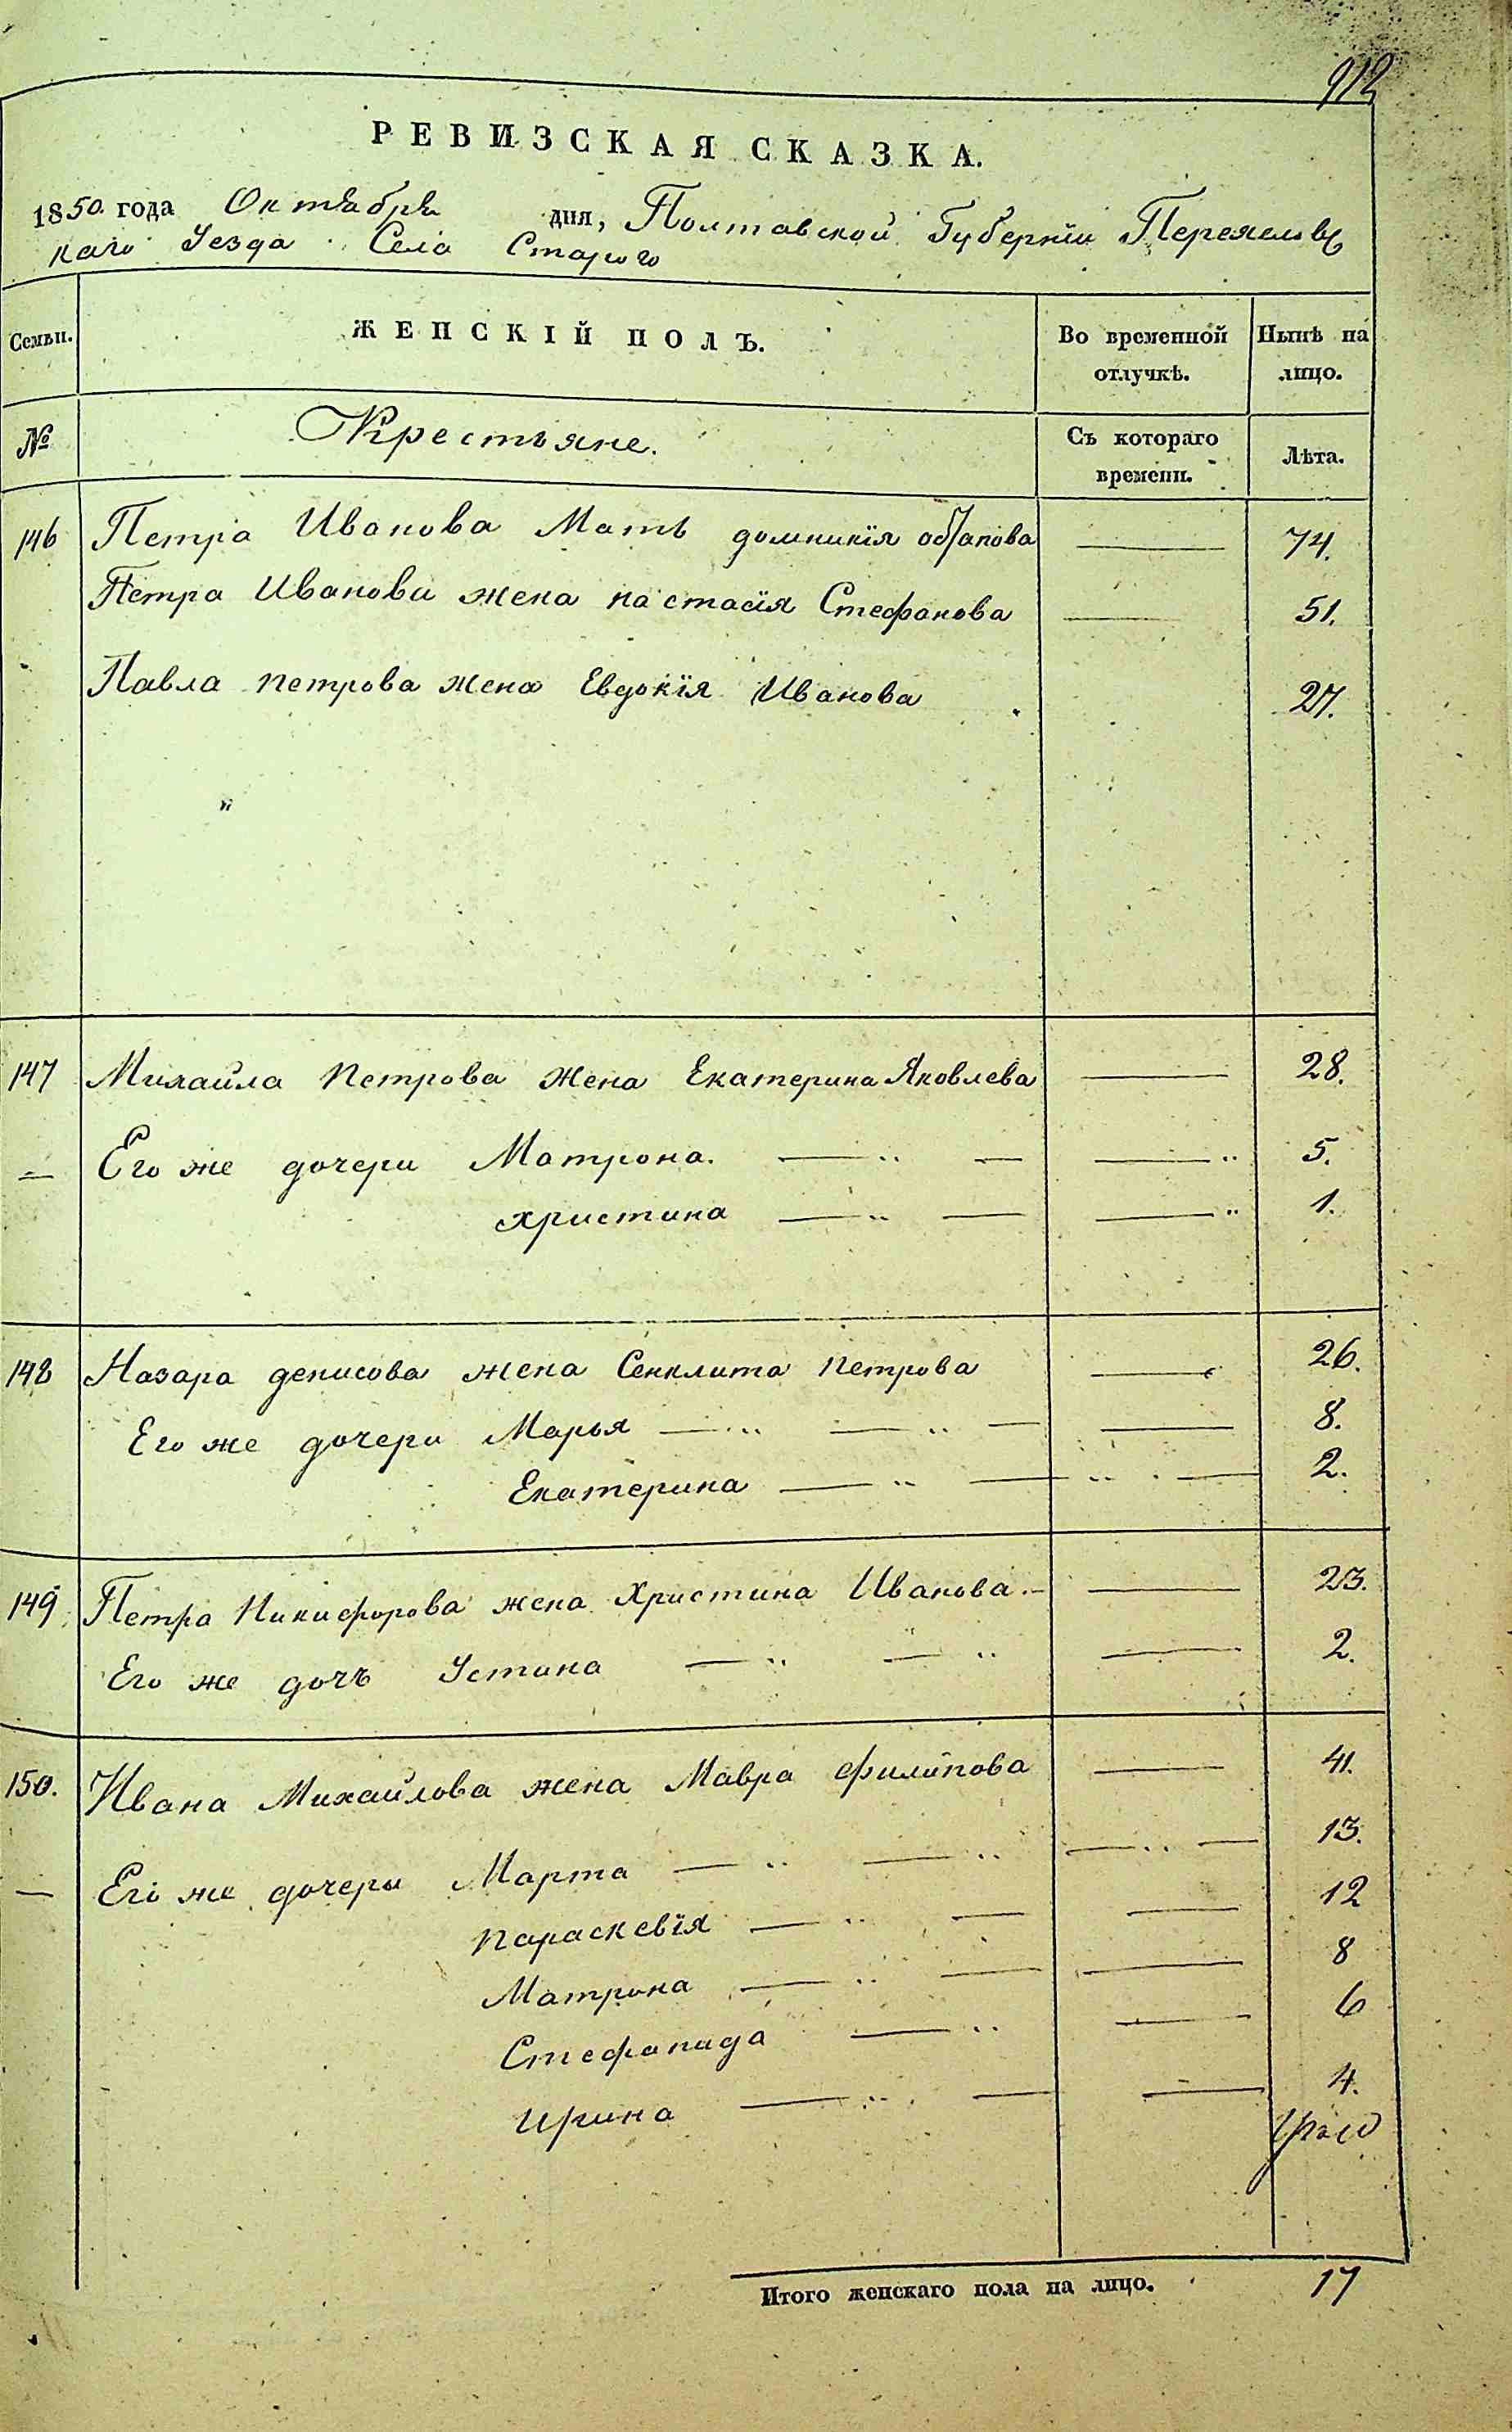 912
РЕВИЗСКАЯ СКАЗКА.
1850. года Октября дня, Полтавской Губерніи Переяславс
каго Уезда Села Старого
Семьи. ЖЕНСКІЙ ПОЛЪ. Во временной отлучкѣ. Нынѣ на лицо.
№ Крестьяне. Съ котораго времени. Лѣта.
146 Петра Иванова Мать домникія — 74.
Петра Иванова жена настасія Стефанова — 51.
Павла петрова жена Евдокія Иванова 27.
147 Михайла Петрова жена Екатерина Яковлева — 28.
— Его же дочери Матрона. — „ — — „ 5.
христина — „ — — „ 1.
148 Назара денисова жена Сенклита петрова — 26.
Его же дочери Марья — „ — „ — — 8.
Екатерина — „ — „ — 2.
149 Петра Никифорова жена Христина Иванова. — — 23.
Его же дочъ Устина — „ — „ — 2.
150. Ивана Михайлова жена Мавра филипова — 41.
— Его же дочери Марта — „ — „ — „ — 13.
параскевія — „ — — 12
Матрона — „ — — 8
Стефанида — „ — 6
ирина — „ — — 4.
Итого женскаго пола на лицо. 17